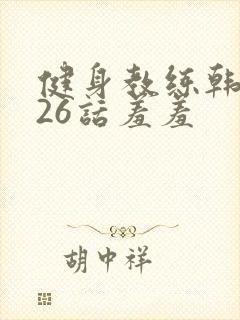 健身教练韩
26話羞羞
胡中祥